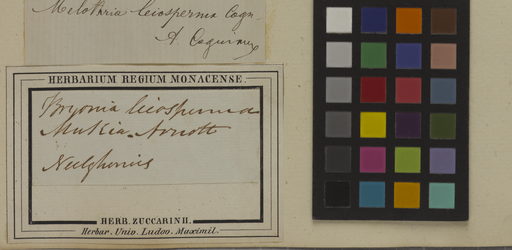 Melothria leiosperma Cogn.
A. Cogniaux
HERBARIUM REGIUM MONACENSE.
Bryonia leiosperma
Mukia Arnott
Neelgherries
HERB. ZUCCARINII.
Herbar. Univ. Ludov. Maximil.